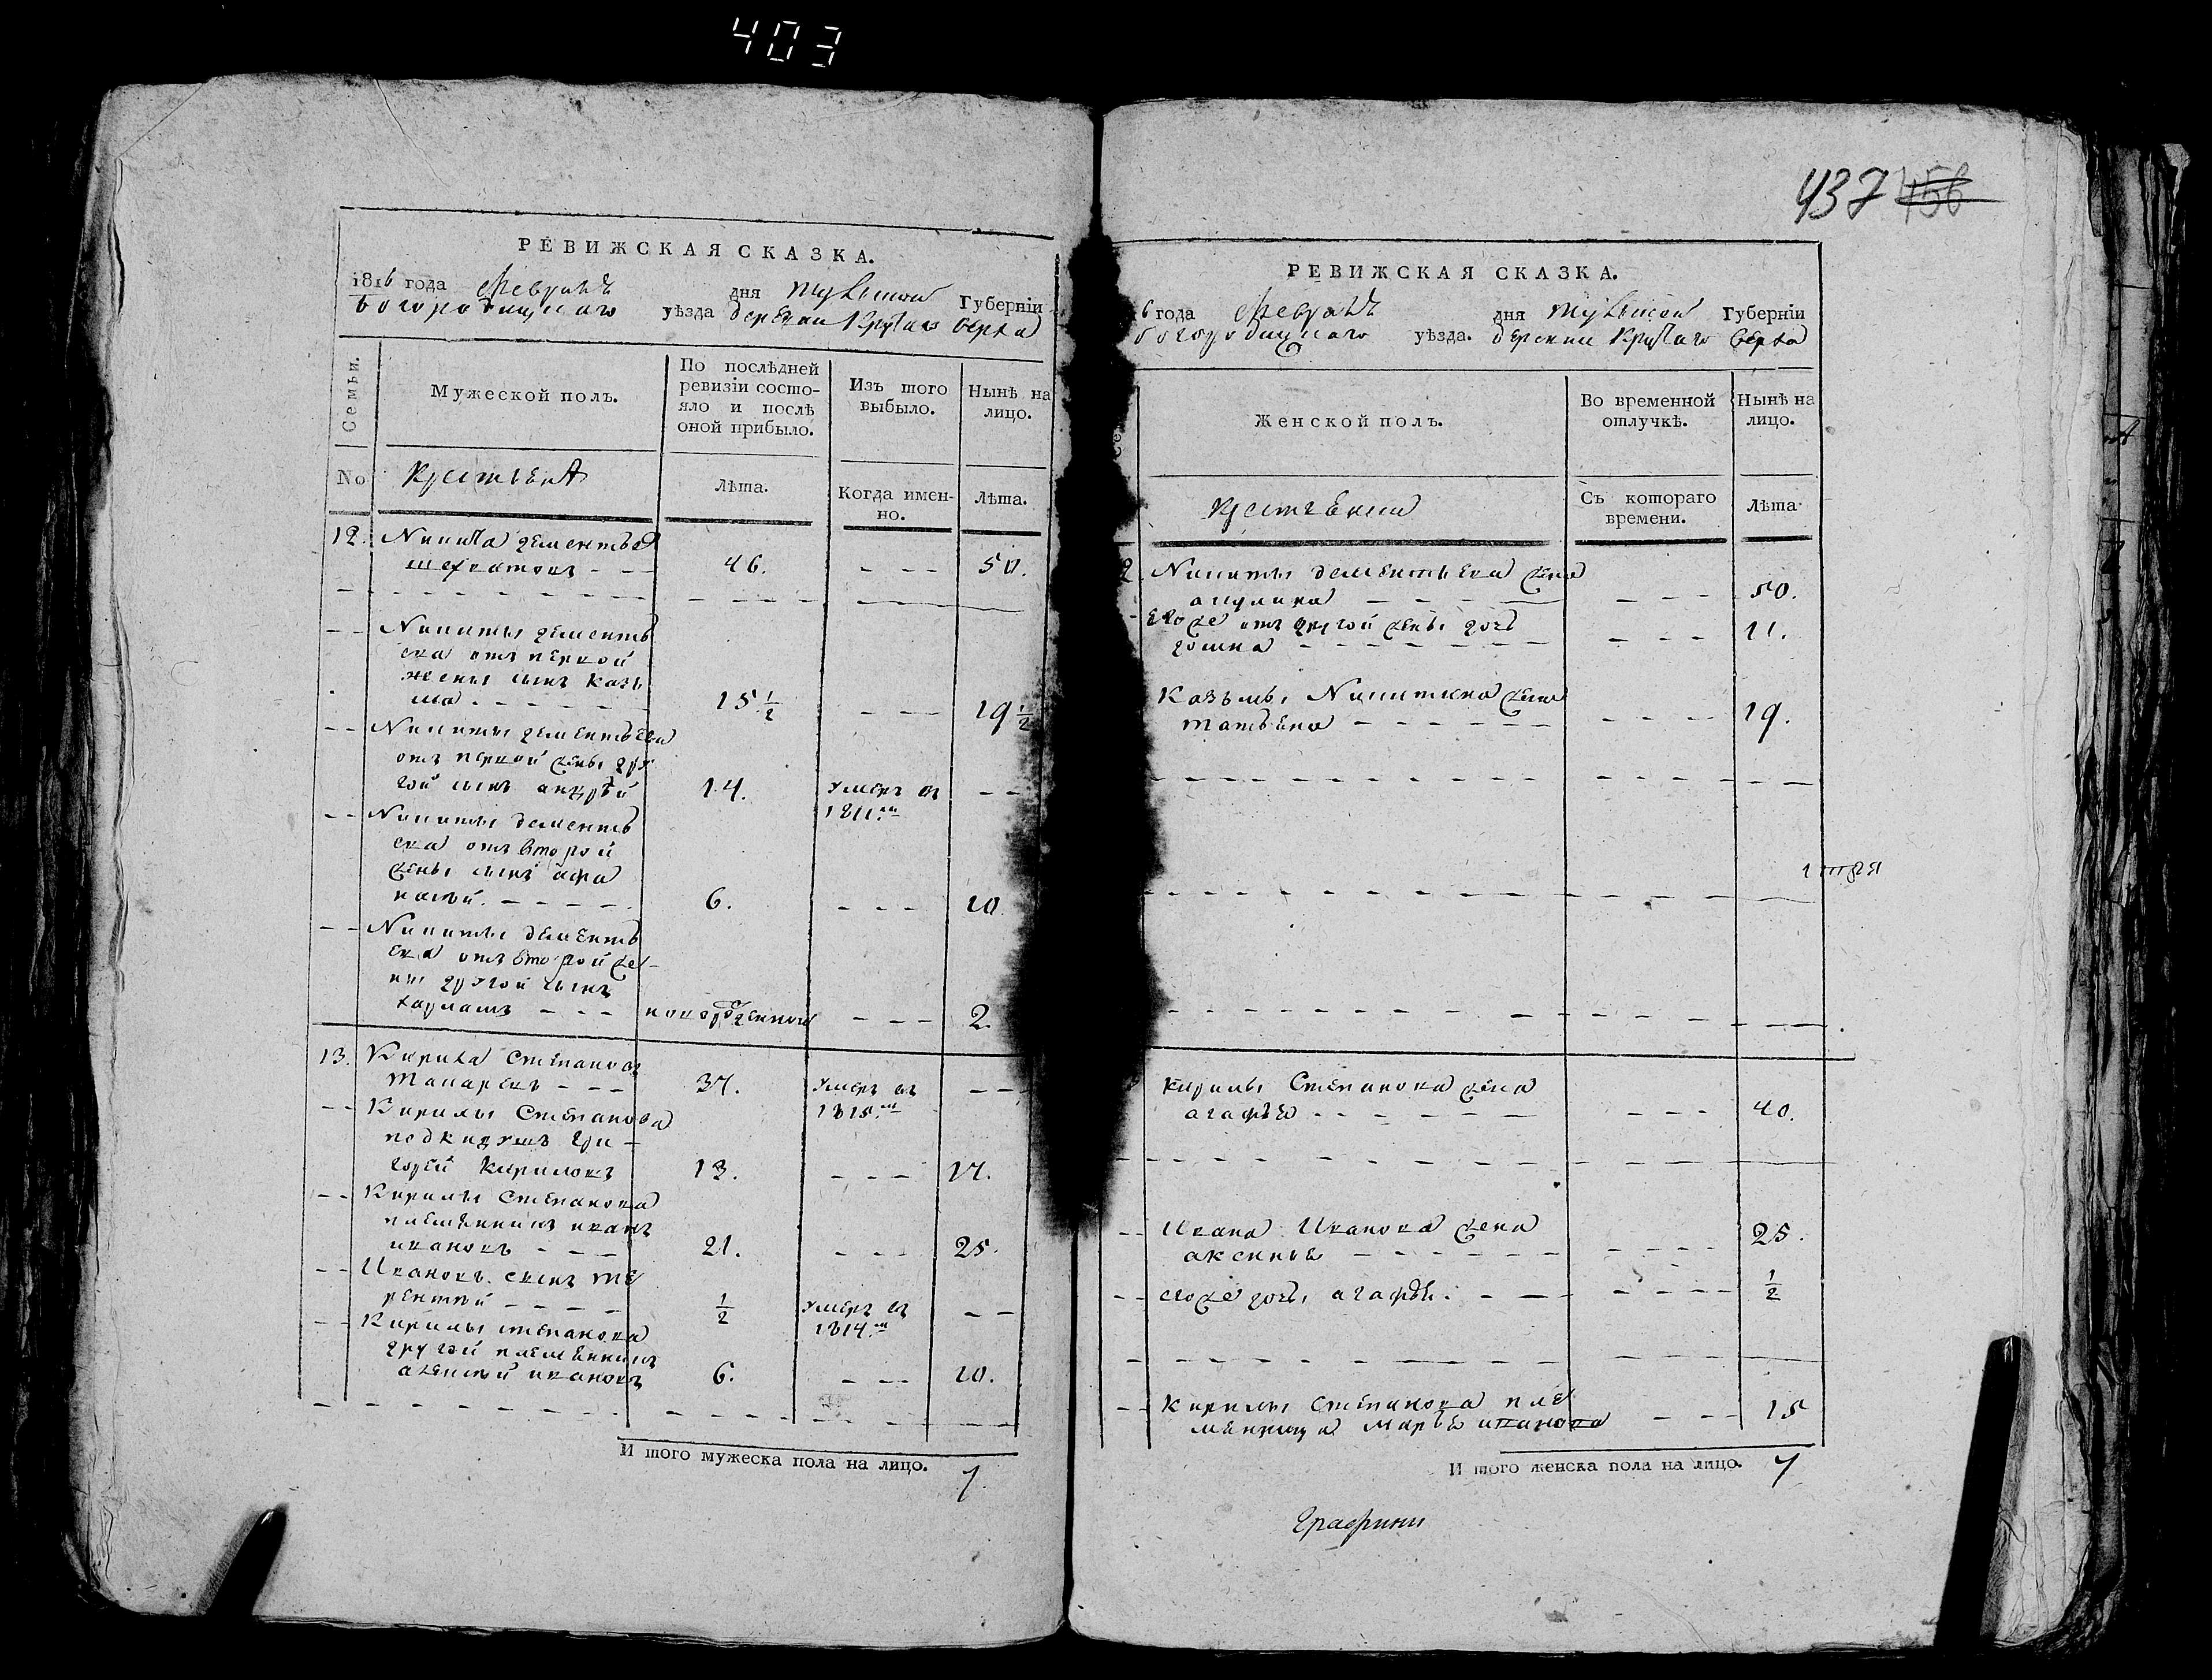 403
РЕВИЖСКАЯ СКАЗКА.
1816 года Февраля дня Тульской Губерніи
Богородицкаго уѣзда деревни Крутаго верха
Семьи.
Мужеской полъ.
По послѣдней ревизіи состояло и послѣ оной прибыло.
Изъ того выбыло.
Нынѣ на лицо.
No
Крестьяня
Лѣта.
Когда именно.
Лѣта.
12. Никита дементьев
46. - - - 50.
Никиты дементь
ева отъ первой
жены сынъ казь
ма 15 1/2 - - - 19 1/2
Никиты дементьева
отъ первой жены дру
гой сынъ андрѣй 14. умеръ въ
1811.м
Никиты дементь
ева отъ второй
жены сынъ афа
насѣй. 6. - - - 10.
Никиты дементь
ева отъ второй же
ны другой сынъ
харламъ новорожденной - - - 2.
13. Кирила Степановъ
37. умеръ въ
1815.м
Кирилы Степанова
подкидушъ гри
горей кириловъ 13. - - - 17.
Кирилы Степанова
племянникъ иванъ
ивановъ 21. - - - 25.
Ивановъ сынъ те
рентѣй 1/2 умеръ въ
1814.м
Кирилы степанова
другой племянникъ
алексѣй ивановъ 6. - - - 10.
И того мужеска пола на лицо. 7.
437 456
РЕВИЖСКАЯ СКАЗКА.
6 года Февраля дня Тульской Губерніи
богородицкаго уѣзда. деревни Крутаго верха
Женской полъ.
Во временной отлучкѣ.
Нынѣ на лицо.
крестьянки
Съ котораго времени.
Лѣта.
2. Никиты дементьева жена
акулина - - - 50.
Его же отъ другой жены дочь
домна - - - 11.
Казьмы Никитина жена
татьяна - - - 19.
Кирилы Степанова жена
агафья - - - 40.
Ивана Иванова жена
аксинья - - - 25.
его же дочь агафья. - - - 1/2
Кирилы степанова пле
мянница марья иванова - - - 15
И того женска пола на лицо. 7
Графини